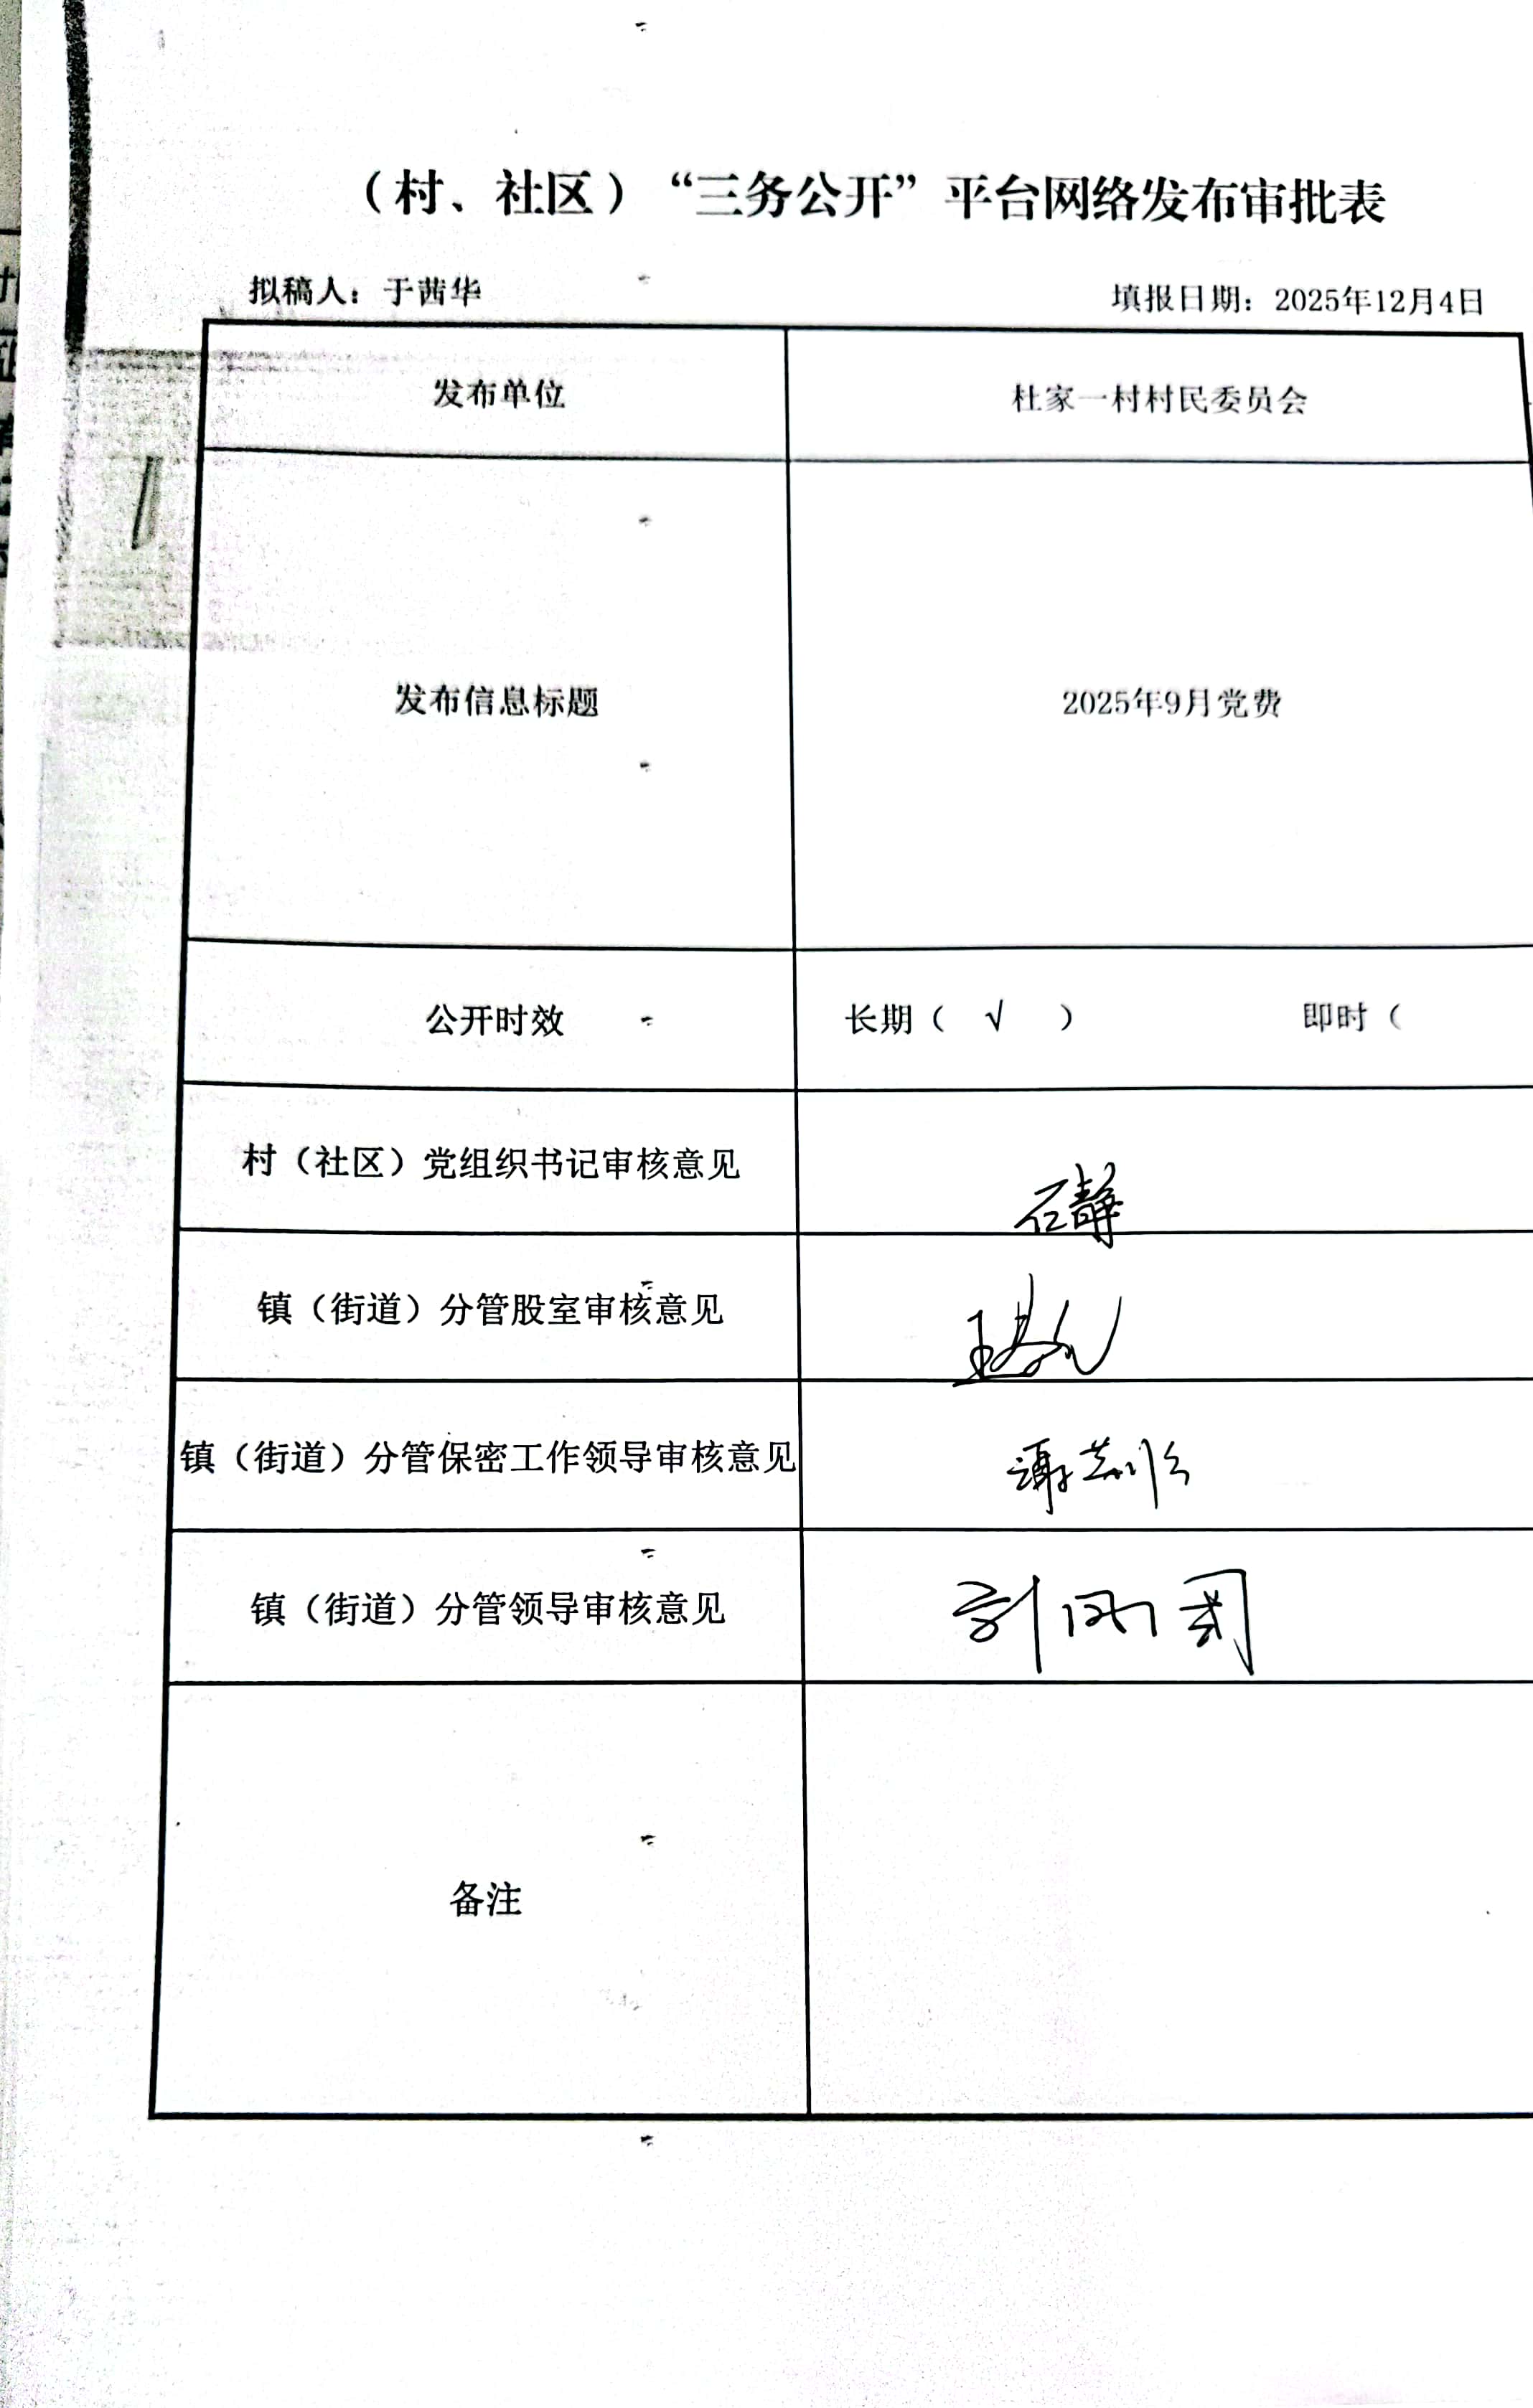 （村、社区）“三务公开”平台网络发布审批表
拟稿人：于茜华 填报日期：2025年12月4日
发布单位 杜家一村村民委员会
发布信息标题 2025年9月党费
公开时效 长期（ √ ） 即时（
村（社区）党组织书记审核意见 石静
镇（街道）分管股室审核意见
镇（街道）分管保密工作领导审核意见
镇（街道）分管领导审核意见
备注